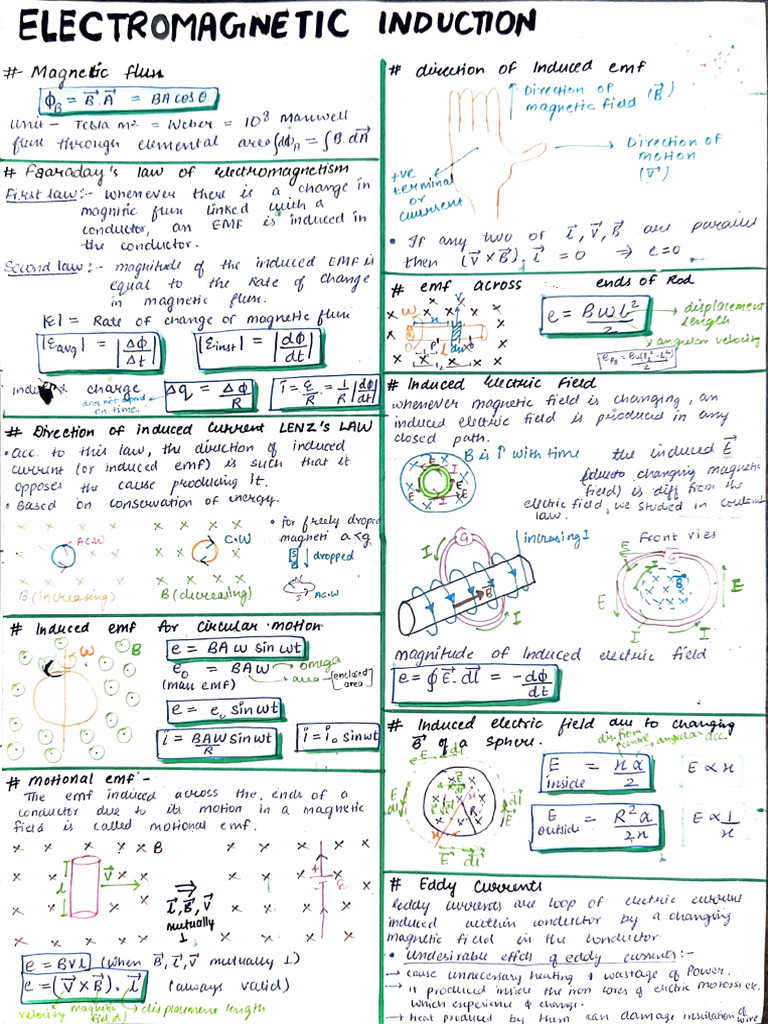 ELECTROMAGNETIC INDUCTION
# Magnetic flux
ϕ_B = B⃗.A⃗ = BA cos θ
Unit - Tesla m² = Weber = 10⁸ Maxwell
flux through elemental area ∫dϕ_A = ∫B.dA⃗
# Faaraday's law of electromagnetism
First law:- Whenever there is a change in
magnitic flux linked with a
conductor, an EMF is induced in
the conductor.
Second law:- magnitude of the induced EMF is
equal to the Rate of change
in magnetic flux.
|ε| = Rate of change of magnetic flux
|ε_avg| = |Δϕ/Δt| |ε_inst| = |dϕ/dt|
charge Δq = Δϕ/R i = ε/R = 1/R |dϕ/dt|
does not depend
on time.
# Direction of induced current LENZ'S LAW
• acc. to this law, the direction of induced
current (or induced emf) is such that it
opposes the cause producing it.
• Based on conservation of energy.
• for freely dropped
magnet a<g
ACW C.W dropped
S
N
ACW
B (increasing) B (decreasing)
# Induced emf for circular motion
ω B
e = BAω sin ωt
e₀ = BAω → omega
(max emf) area → [enclosed area]
e = e₀ sin ωt
i = BAω/R sin ωt i = i₀ sin ωt
# motional emf -
The emf induced across the ends of a
conductor due to its motion in a magnetic
field is called motional emf.
B
l V⃗ ⇒ + ε
l⃗, B⃗, V⃗
mutually
⊥
e = BVl (when B⃗, l⃗, V⃗ mutually ⊥)
e = (V⃗ × B⃗). l⃗ (always valid)
velocity magnetic field displacement length
# direction of Induced emf
Direction of
magnetic field (B⃗)
Direction of
motion
(V⃗)
+ve
terminal
or
current
• If any two of l⃗, V⃗, B⃗ are parallel
then (V⃗ × B⃗). l⃗ = 0 ⇒ e = 0
# emf across ends of Rod
e = Bωl²/2 → displacement
length
→ angular velocity
# Induced Electric Field
whenever magnetic field is changing, an
induced electric field is produced in any
closed path.
B is ↑ with time
E I E E E I
the induced E⃗
(due to changing magnetic
field) is diff from the
electric field, we studied in Coulomb
law.
increasing I
G I B⃗ I
Front view
E G I B⃗ E E I I
magnitude of Induced electric field
e = ∮E⃗.dl⃗ = -dϕ/dt
# Induced electric field due to changing
B⃗ of a sphere.
dis. from
centre angular acc.
E inside = xα/2 E ∝ x
E outside = R²α/2x E ∝ 1/x
E dl E dl R x E⃗ dl⃗
# Eddy currents
eddy currents are loop of electric current
induced within conductor by a changing
magnetic field in the conductor
• undesirable effects of eddy currents:-
→ cause unnecessary heating & wastage of Power.
→ it produced inside the iron cores of electric motors etc.
which experience ϕ change.
→ heat produced by them can damage insulation of wire